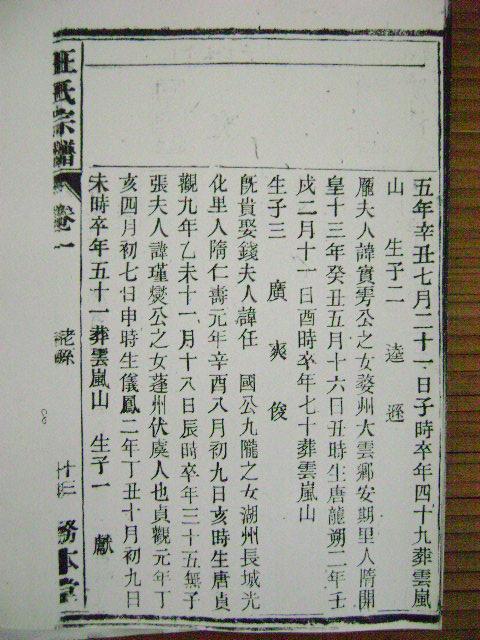 五年辛丑七月二十一日子時卒年四十九葬雲嵐
山　生子二　逵　遜
龐夫人諱實勇公之女婺州太雲鄉安期里人隋開
皇十三年癸丑五月十六日丑時生唐龍朔二年壬
戌二月十一日酉時卒年七十葬雲嵐山
生子三　廣　爽　俊
旣貴娶錢夫人諱任　國公九隴之女湖州長城光
化里人隋仁壽元年辛酉八月初九日亥時生唐貞
觀九年乙未十一月十八日辰時卒年三十五無子
張夫人諱瑾爕公之女蓬州伏虞人也貞觀元年丁
亥四月初七日申時生儀鳳二年丁丑十月初九日
未時卒年五十一葬雲嵐山　生子一　獻
汪氏宗譜　卷一　務本堂